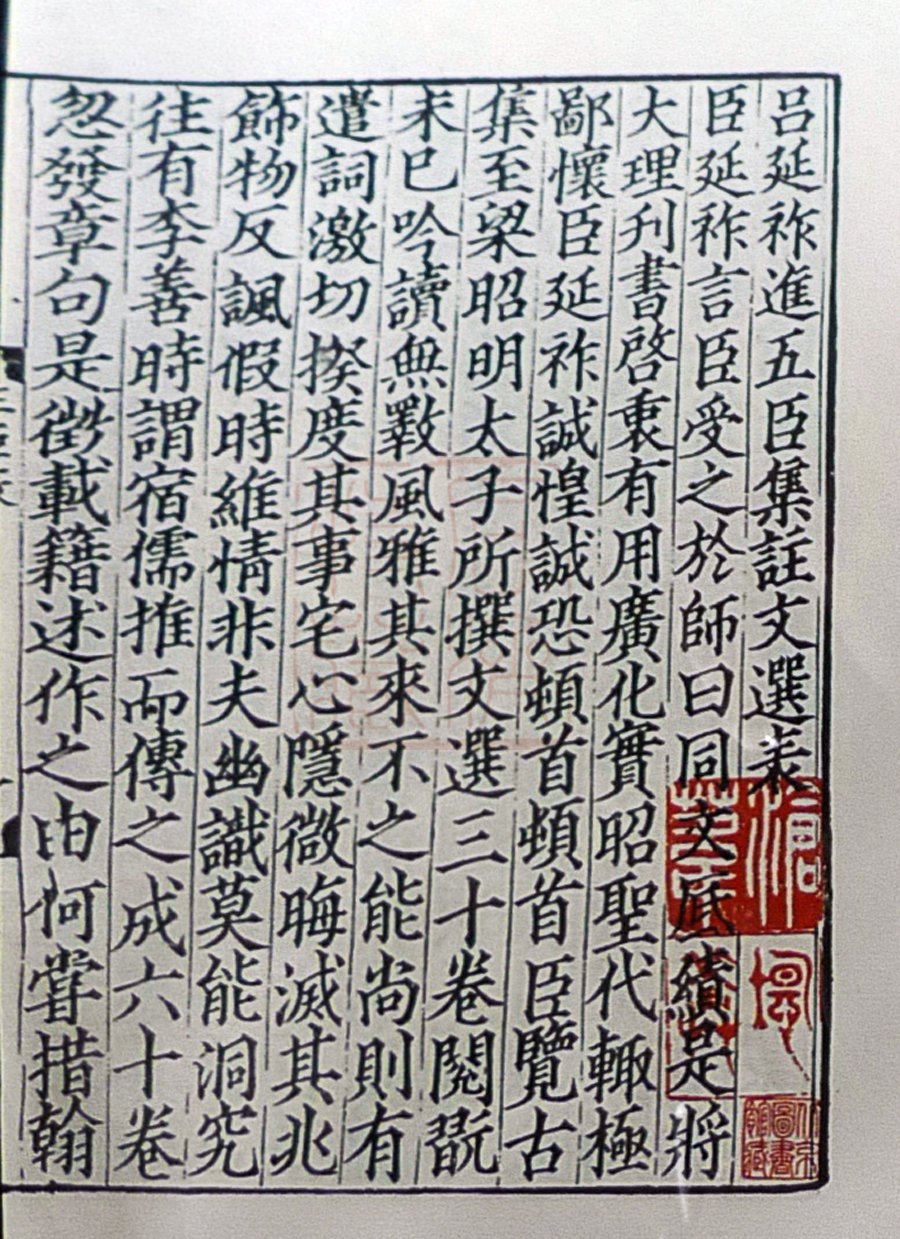 呂延祚進五臣集註文選表
臣延祚言臣受之於師曰同文底績是將
大理刋書啓衷有用廣化實昭聖代輙極
鄙懷臣延祚誠惶誠恐頓首頓首臣覽古
集至梁昭明太子所撰文選三十卷閱翫
未已吟讀無斁風雅其來不之能尚則有
遣詞激切揆度其事宅心隱微晦滅其兆
飾物反諷假時維情非夫幽識莫能洞究
往有李善時謂宿儒推而傳之成六十卷
忽發章句是徵載籍述作之由何甞措翰